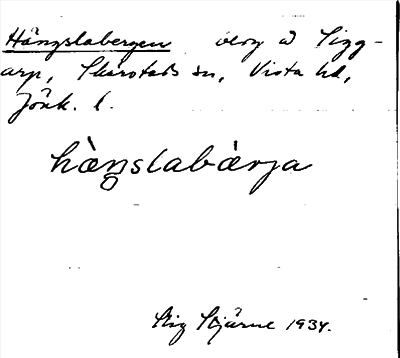 Hängslabergen berg å Sigg-
arp, Skärstads sn, Vista hd,
Jönk. l.
hàŋslabàrja
Stig Stjärne 1934.